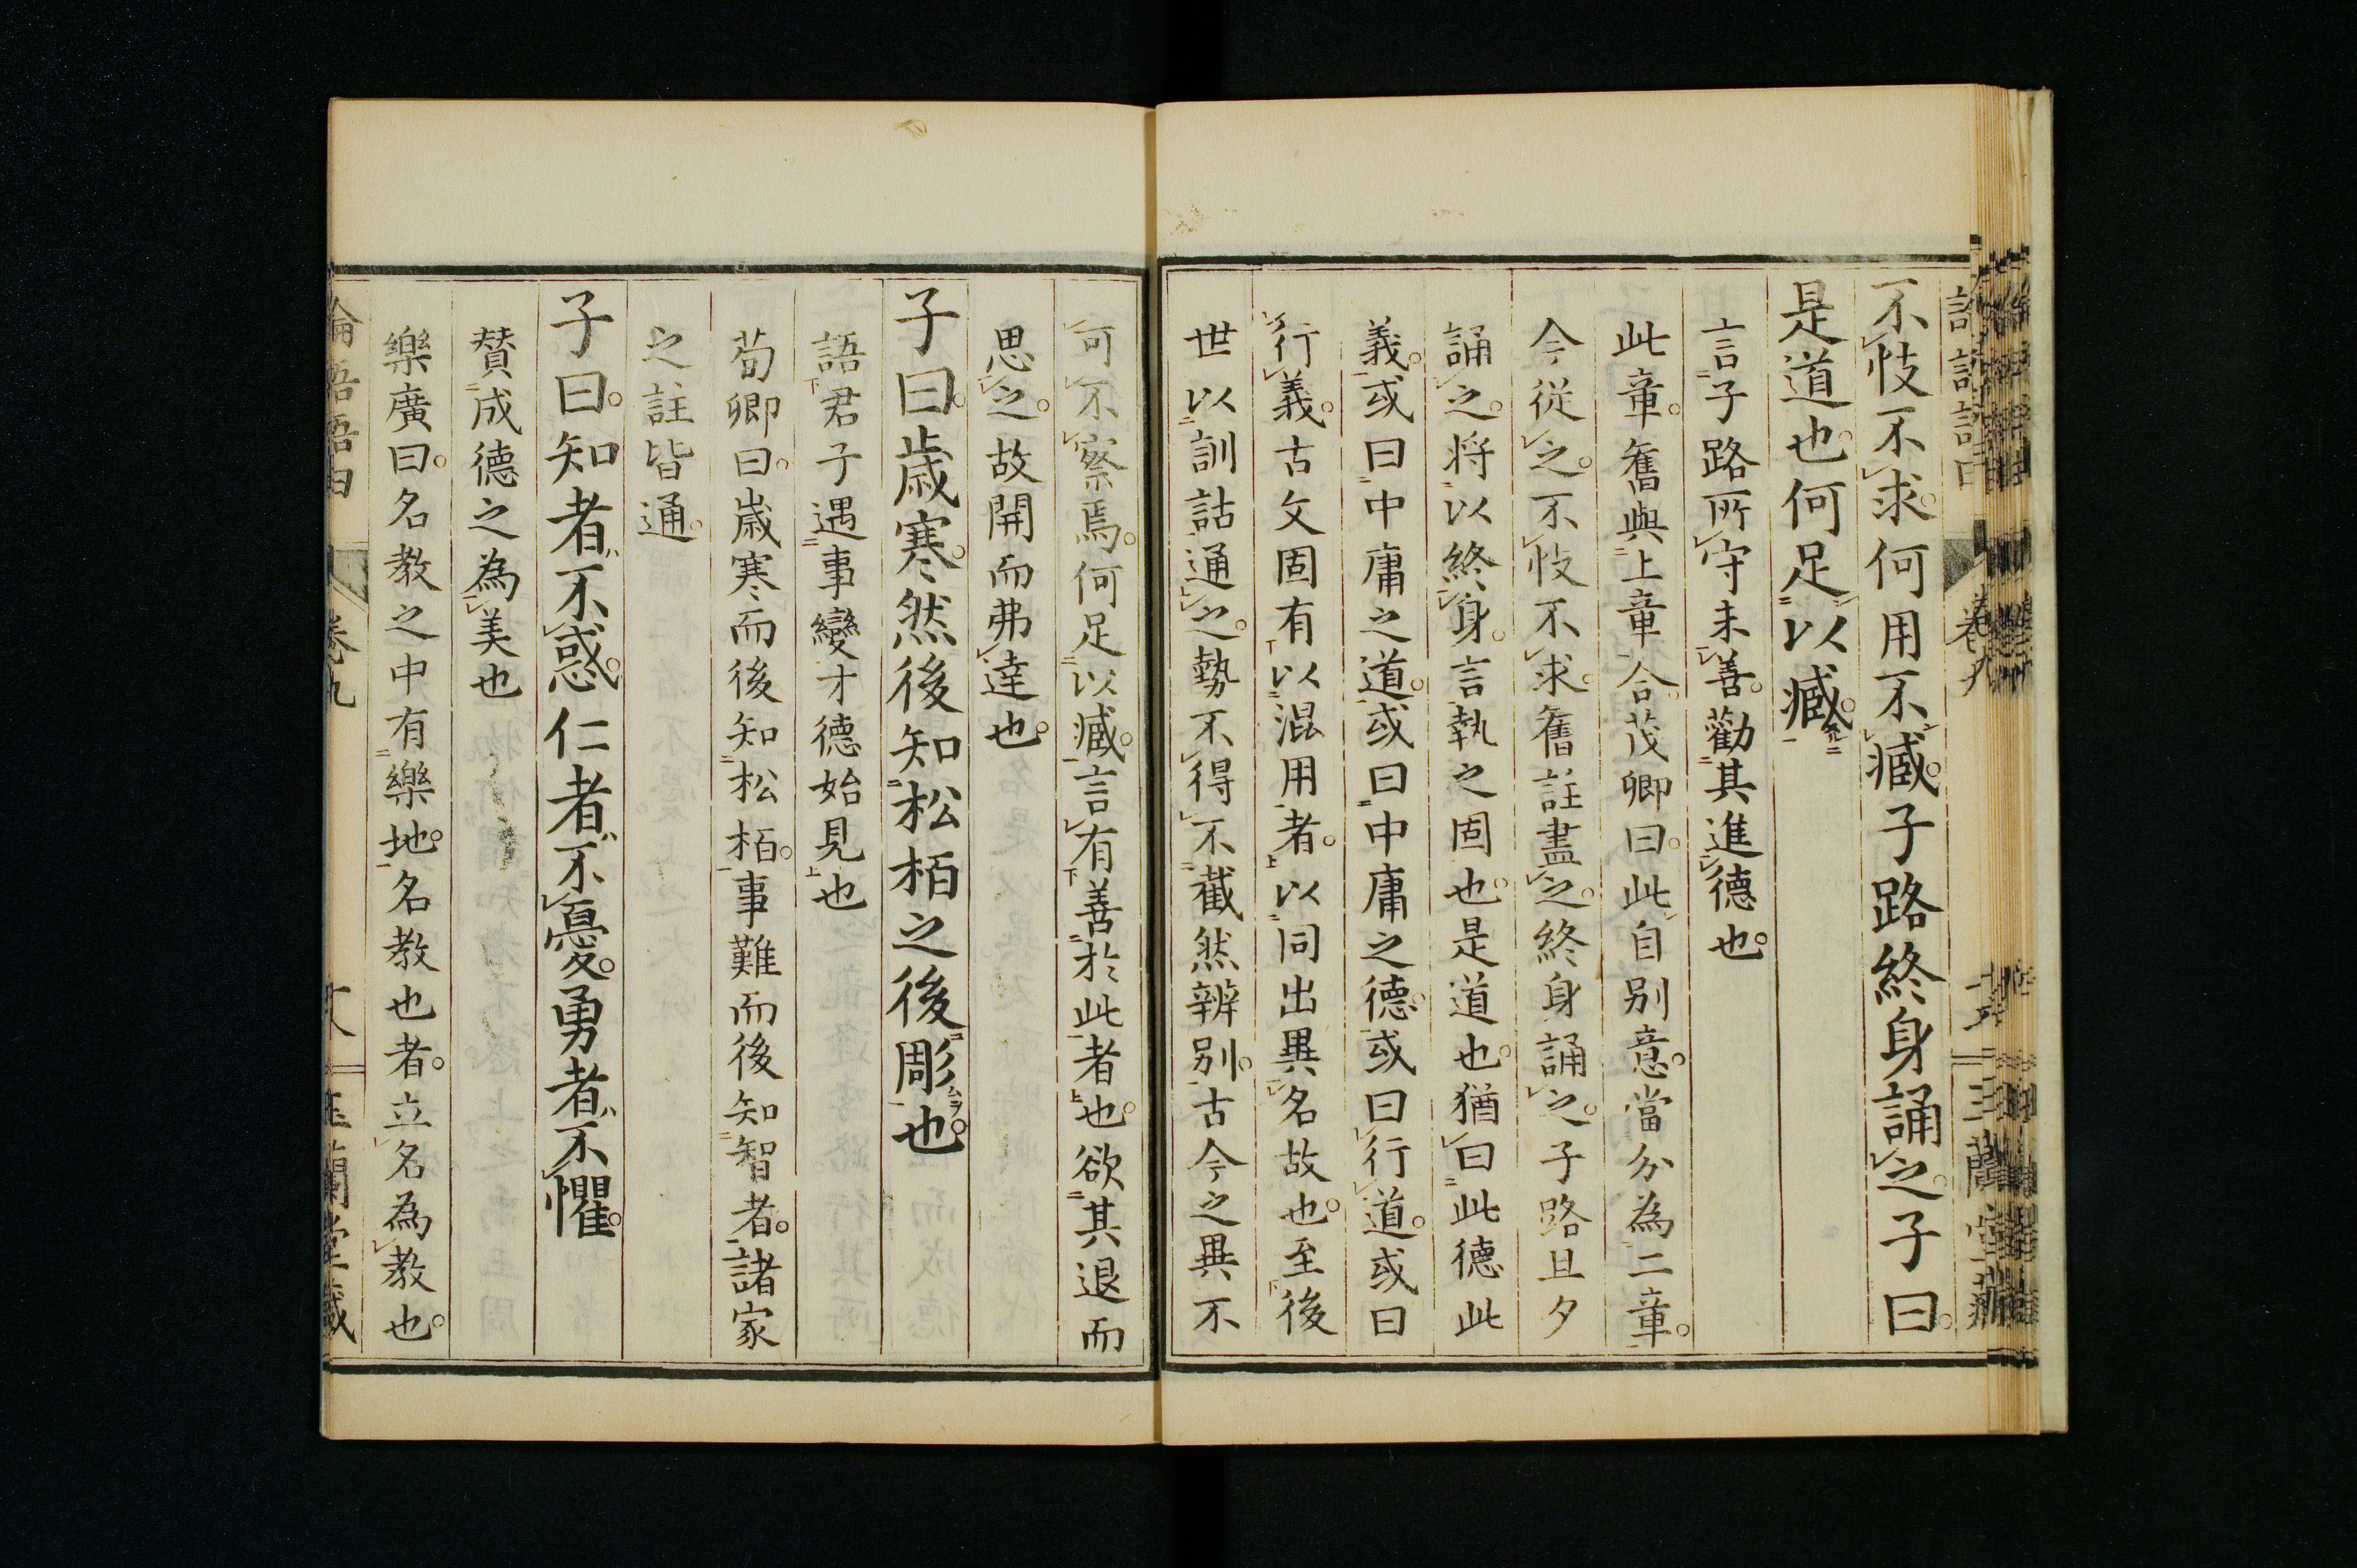 不忮不求。何用不臧。子路終身誦之。子曰。
是道也。何足以臧。
言子路所守未善。勸其進德也。
此章。舊與上章合。茂卿曰。此自別意。當分為二章。
今從之。不忮不求。舊註盡之。終身誦之。子路旦夕
誦之。將以終身。言執之固也。是道也。猶曰此德此
義。或曰中庸之道。或曰中庸之德。或曰行道。或曰
行義。古文固有以混用者。以同出異名故也。至後
世以訓詁通之。勢不得不截然辨別。古今之異不
可不察焉。何足以臧。言有善於此者也。欲其退而
思之。故開而弗達也。
子曰。歲寒。然後知松栢之後彫也。
語君子遇事變才德始見也
荀卿曰。歲寒而後知松栢。事難而後知智者。諸家
之註皆通。
子曰。知者不惑。仁者不憂。勇者不懼。
賛成德之為美也
樂廣曰。名教之中有樂地。名教也者。立名為教也。
卷九